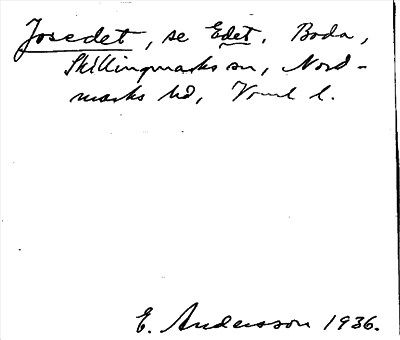 Josedet, se Edet. Boda,
Skillingmarks sn, Nord-
marks hd, Vrml l.
E. Andersson 1936.